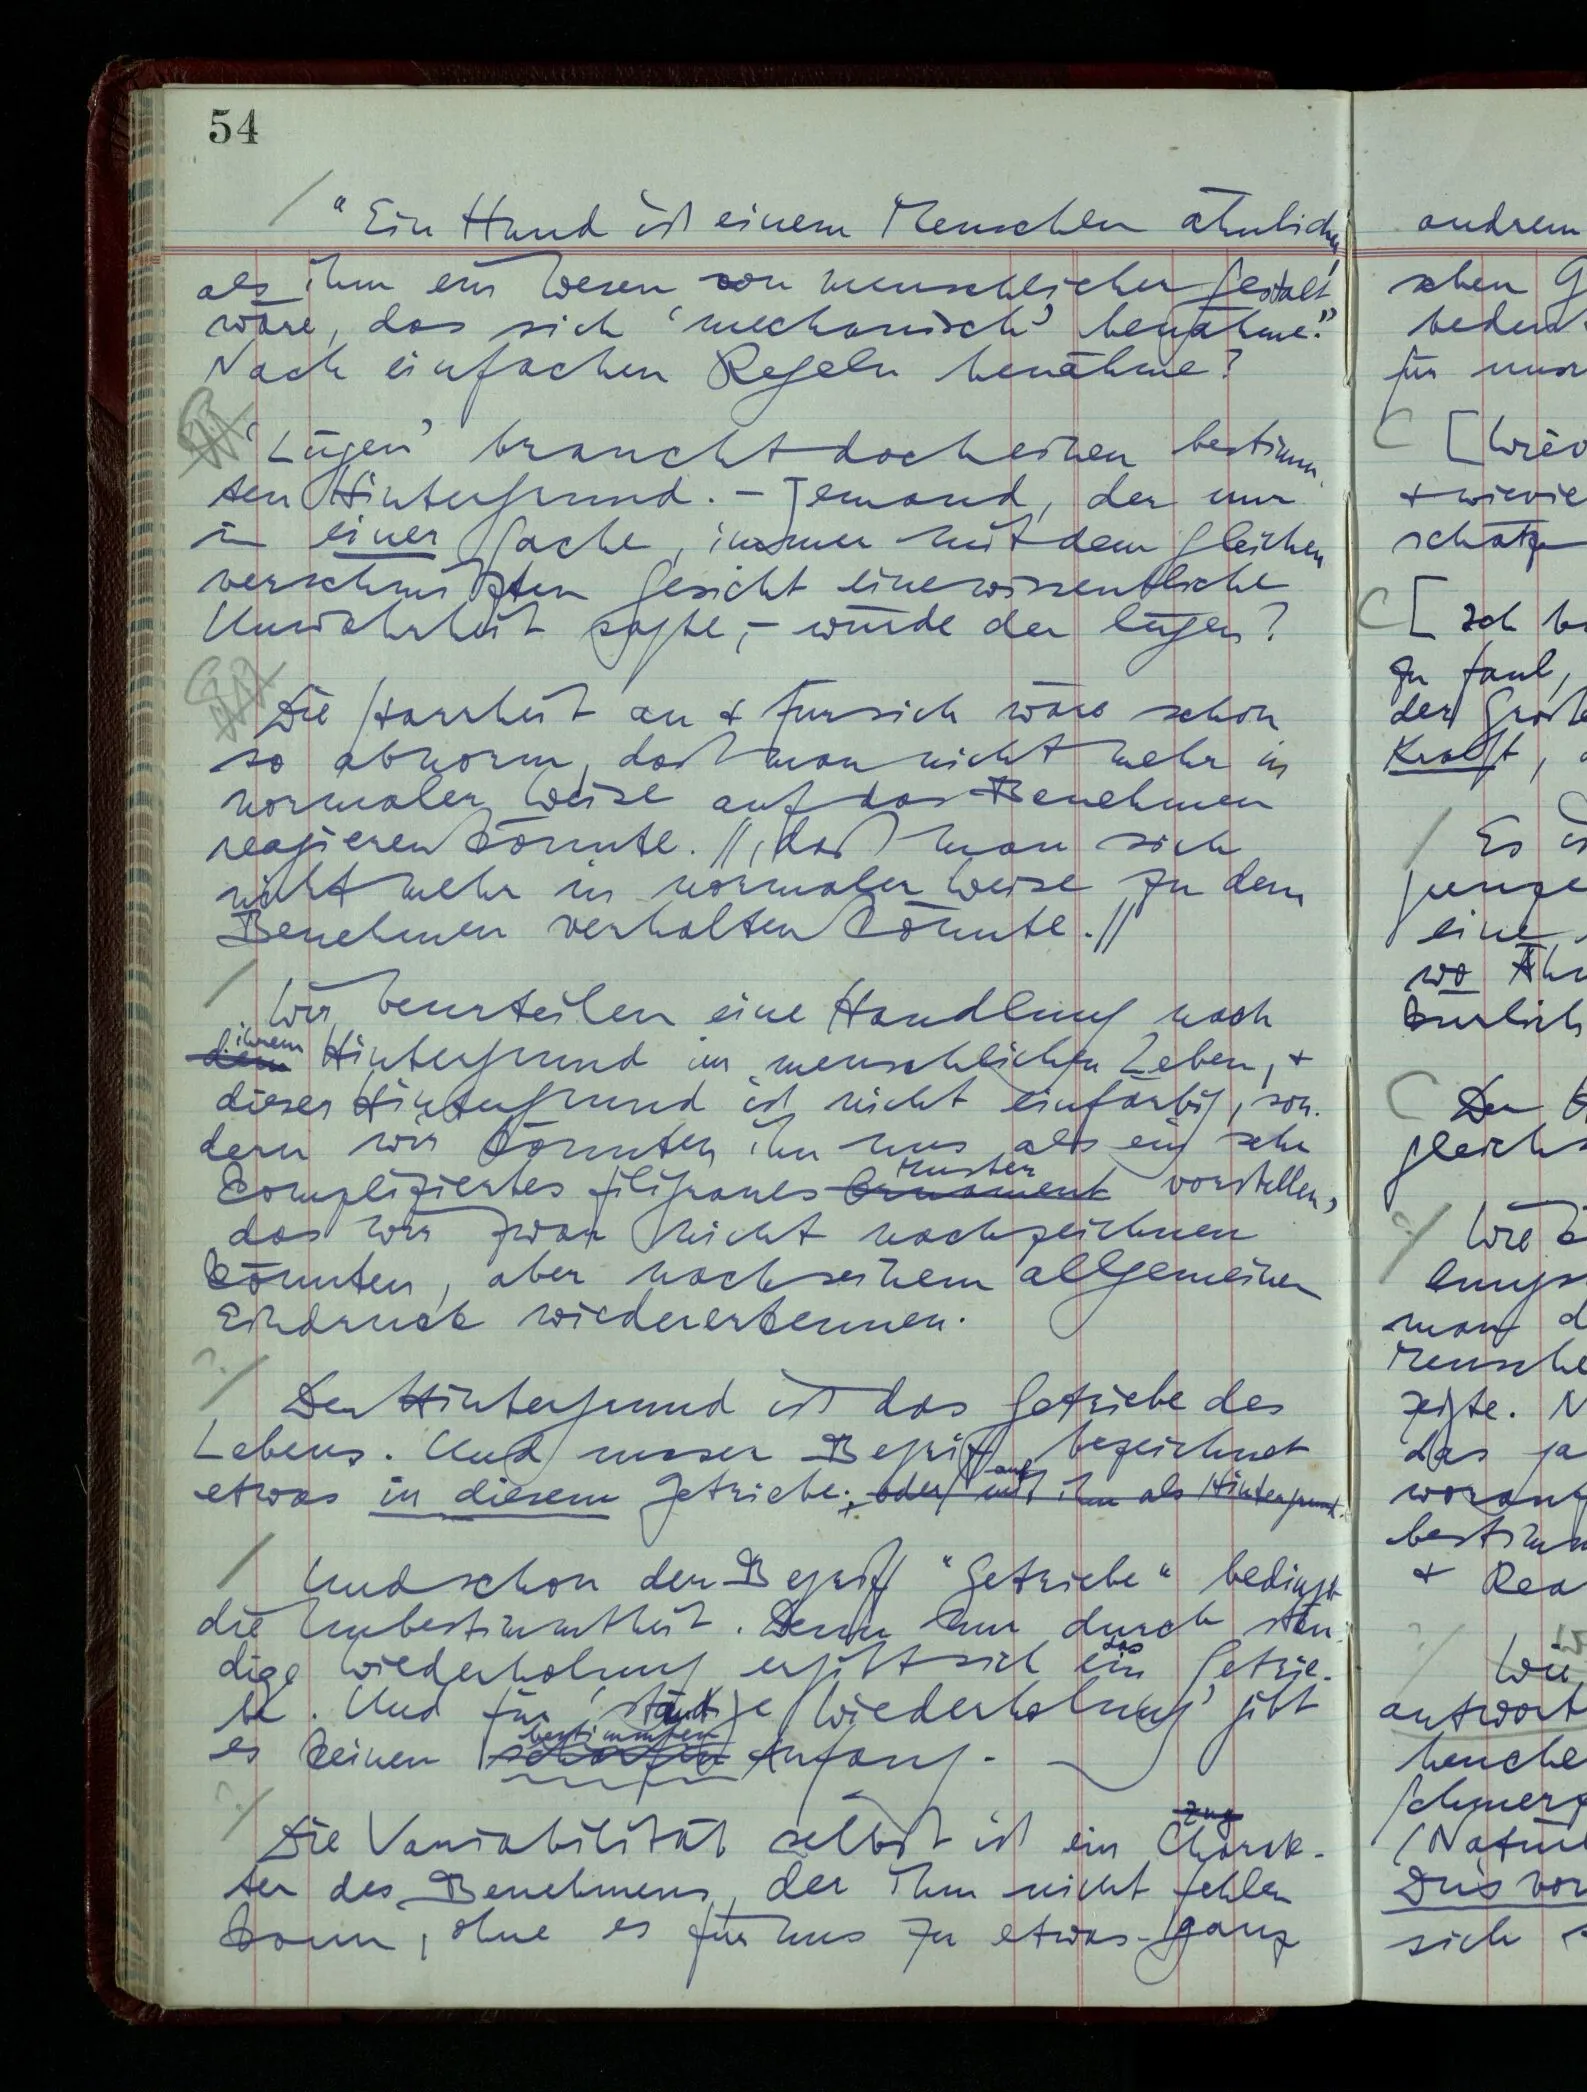 54
/ "Ein Hund ist einem Menschen ähnlicher,
als ihm ein Wesen von menschlicher Gestalt
wäre, das sich ‘mechanisch’ benähme."
Nach einfachen Regeln benähme?
‘Lügen’ braucht doch einen bestimm-
ten Hintergrund. – Jemand, der nur
in einer Sache, immer mit dem gleichen
verschmitzten Gesicht eine wissentliche
Unwahrheit sagte, – würde der lügen?
Die Starrheit an & für sich wäre schon
so abnorm, daß man nicht mehr in
normaler Weise auf das Benehmen
reagieren könnte. //, daß man sich
nicht mehr in normaler Weise zu dem
Benehmen verhalten könnte. //
/ Wir beurteilen eine Handlung nach
ihrem
dem Hintergrund im menschlichen Leben, &
dieser Hintergrund ist nicht einfärbig, son-
dern wir könnten ihn uns als ein sehr
Muster
kompliziertes filigranes Ornament vorstellen,
das wir zwar nicht nachzeichnen
könnten, aber nach seinem allgemeinen
Eindruck wiedererkennen.
?/ Der Hintergrund ist das Getriebe des
Lebens. Und unser Begriff bezeichnet
auf
etwas in diesem Getriebe; oder mit ihm als Hintergrund.
/ Und schon der Begriff "Getriebe" bedingt
die Unbestimmtheit. Denn nur durch stän-
das
dige Wiederholung ergibt sich ein Getrie-
be. Und für ‘ständige Wiederholung’ gibt
bestimmten
es keinen scharfen Anfang.
?/ zug
Die Variabilität selbst ist ein Charak-
ter des Benehmens, der ihm nicht fehlen
kann, ohne es für uns zu etwas ganz
andrem
schen G
für unsr
C [Wiev
& wievie
C [Ich
zu faul,
Kraft,
/ Es
junge
eine
wo
C Der
gleich
?/ Wie
man d
Mensche
zeigte. N
das ja
bestimm
& Rea
?/ Wie
antwort
heuchel
Schmerz
(Natür
sich